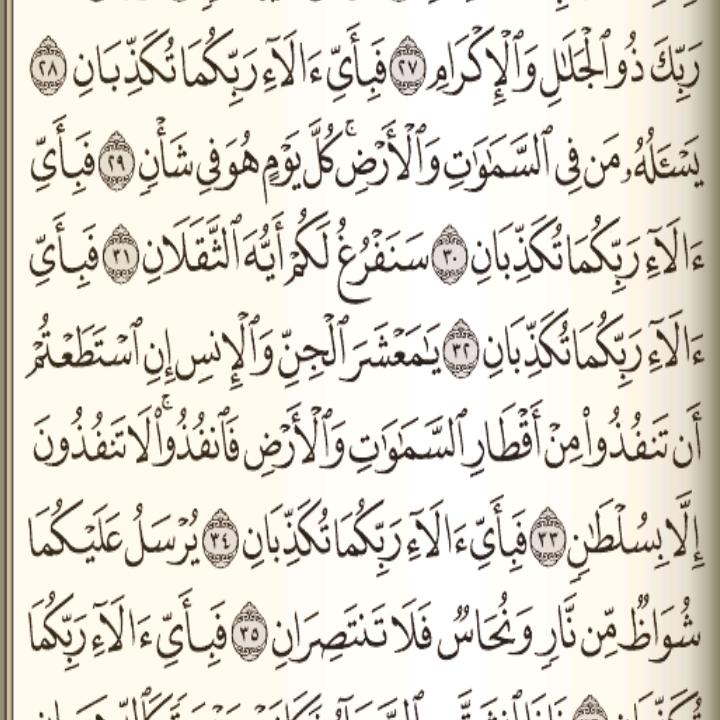 رَبِّكَ ذُو ٱلْجَلَـٰلِ وَٱلْإِكْرَامِ ٢٧ فَبِأَىِّ ءَالَآءِ رَبِّكُمَا تُكَذِّبَانِ ٢٨
يَسْـَٔلُهُۥ مَن فِى ٱلسَّمَـٰوَٰتِ وَٱلْأَرْضِ ۚ كُلَّ يَوْمٍ هُوَ فِى شَأْنٍ ٢٩ فَبِأَىِّ
ءَالَآءِ رَبِّكُمَا تُكَذِّبَانِ ٣٠ سَنَفْرُغُ لَكُمْ أَيُّهَ ٱلثَّقَلَانِ ٣١ فَبِأَىِّ
ءَالَآءِ رَبِّكُمَا تُكَذِّبَانِ ٣٢ يَـٰمَعْشَرَ ٱلْجِنِّ وَٱلْإِنسِ إِنِ ٱسْتَطَعْتُمْ
أَن تَنفُذُوا۟ مِنْ أَقْطَارِ ٱلسَّمَـٰوَٰتِ وَٱلْأَرْضِ فَٱنفُذُوا۟ ۚ لَا تَنفُذُونَ
إِلَّا بِسُلْطَـٰنٍ ٣٣ فَبِأَىِّ ءَالَآءِ رَبِّكُمَا تُكَذِّبَانِ ٣٤ يُرْسَلُ عَلَيْكُمَا
شُوَاظٌ مِّن نَّارٍ وَنُحَاسٌ فَلَا تَنتَصِرَانِ ٣٥ فَبِأَىِّ ءَالَآءِ رَبِّكُمَا